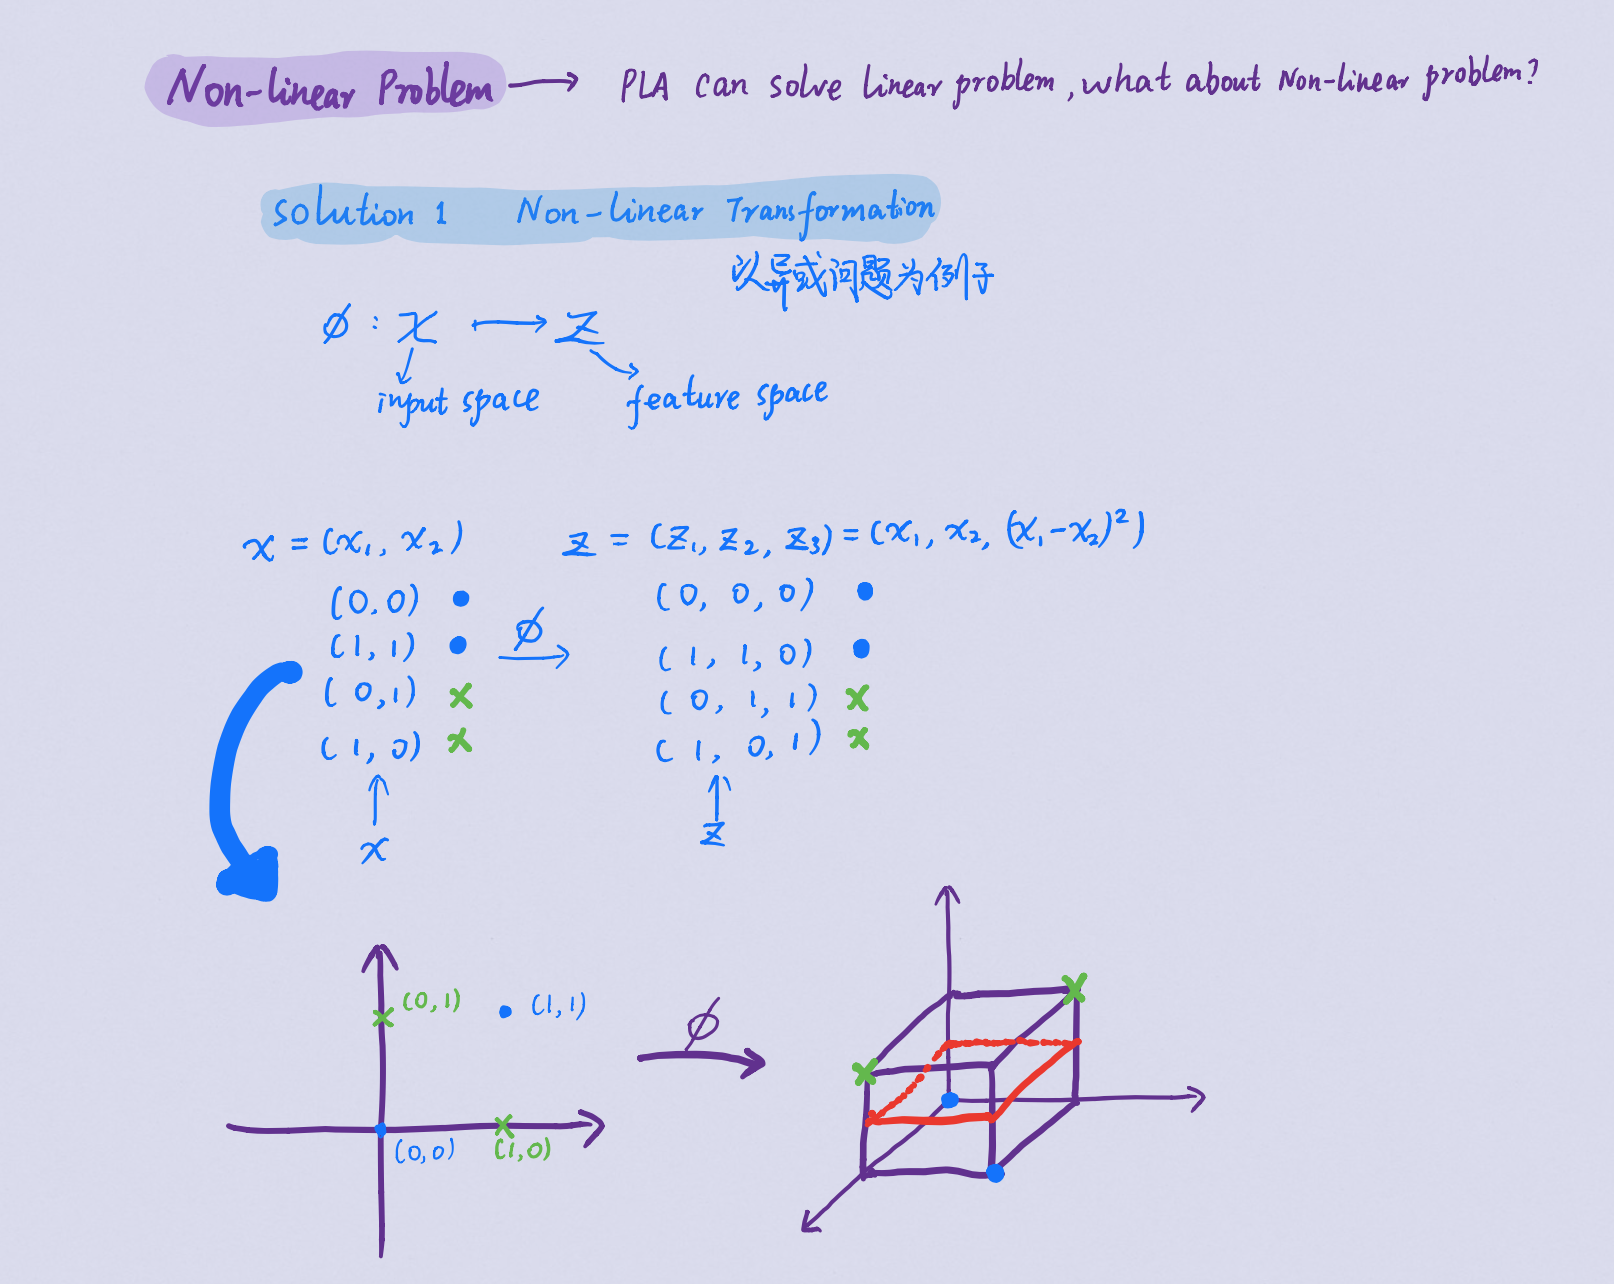 Non-linear Problem → PLA can solve linear problem, what about Non-linear problem?
solution 1 Non-linear Transformation
以异或问题为例子
ø : X ⟼ Z
input space feature space
x = (x₁, x₂) z = (z₁, z₂, z₃) = (x₁, x₂, (x₁-x₂)²)
(0,0) (0, 0, 0)
ø
(1, 1) (1, 1, 0)
(0,1) (0, 1, 1)
(1, 0) (1, 0, 1)
x z
(0,1) (1,1)
ø
(0,0) (1,0)